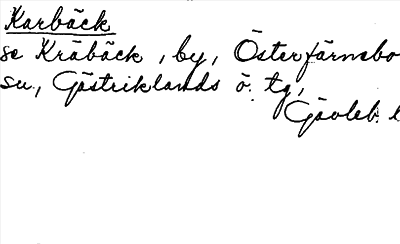 Karbäck
se Kråbäck, by, Österfärnebo
su, Gästriklands ö. tg,
Gävleb. l